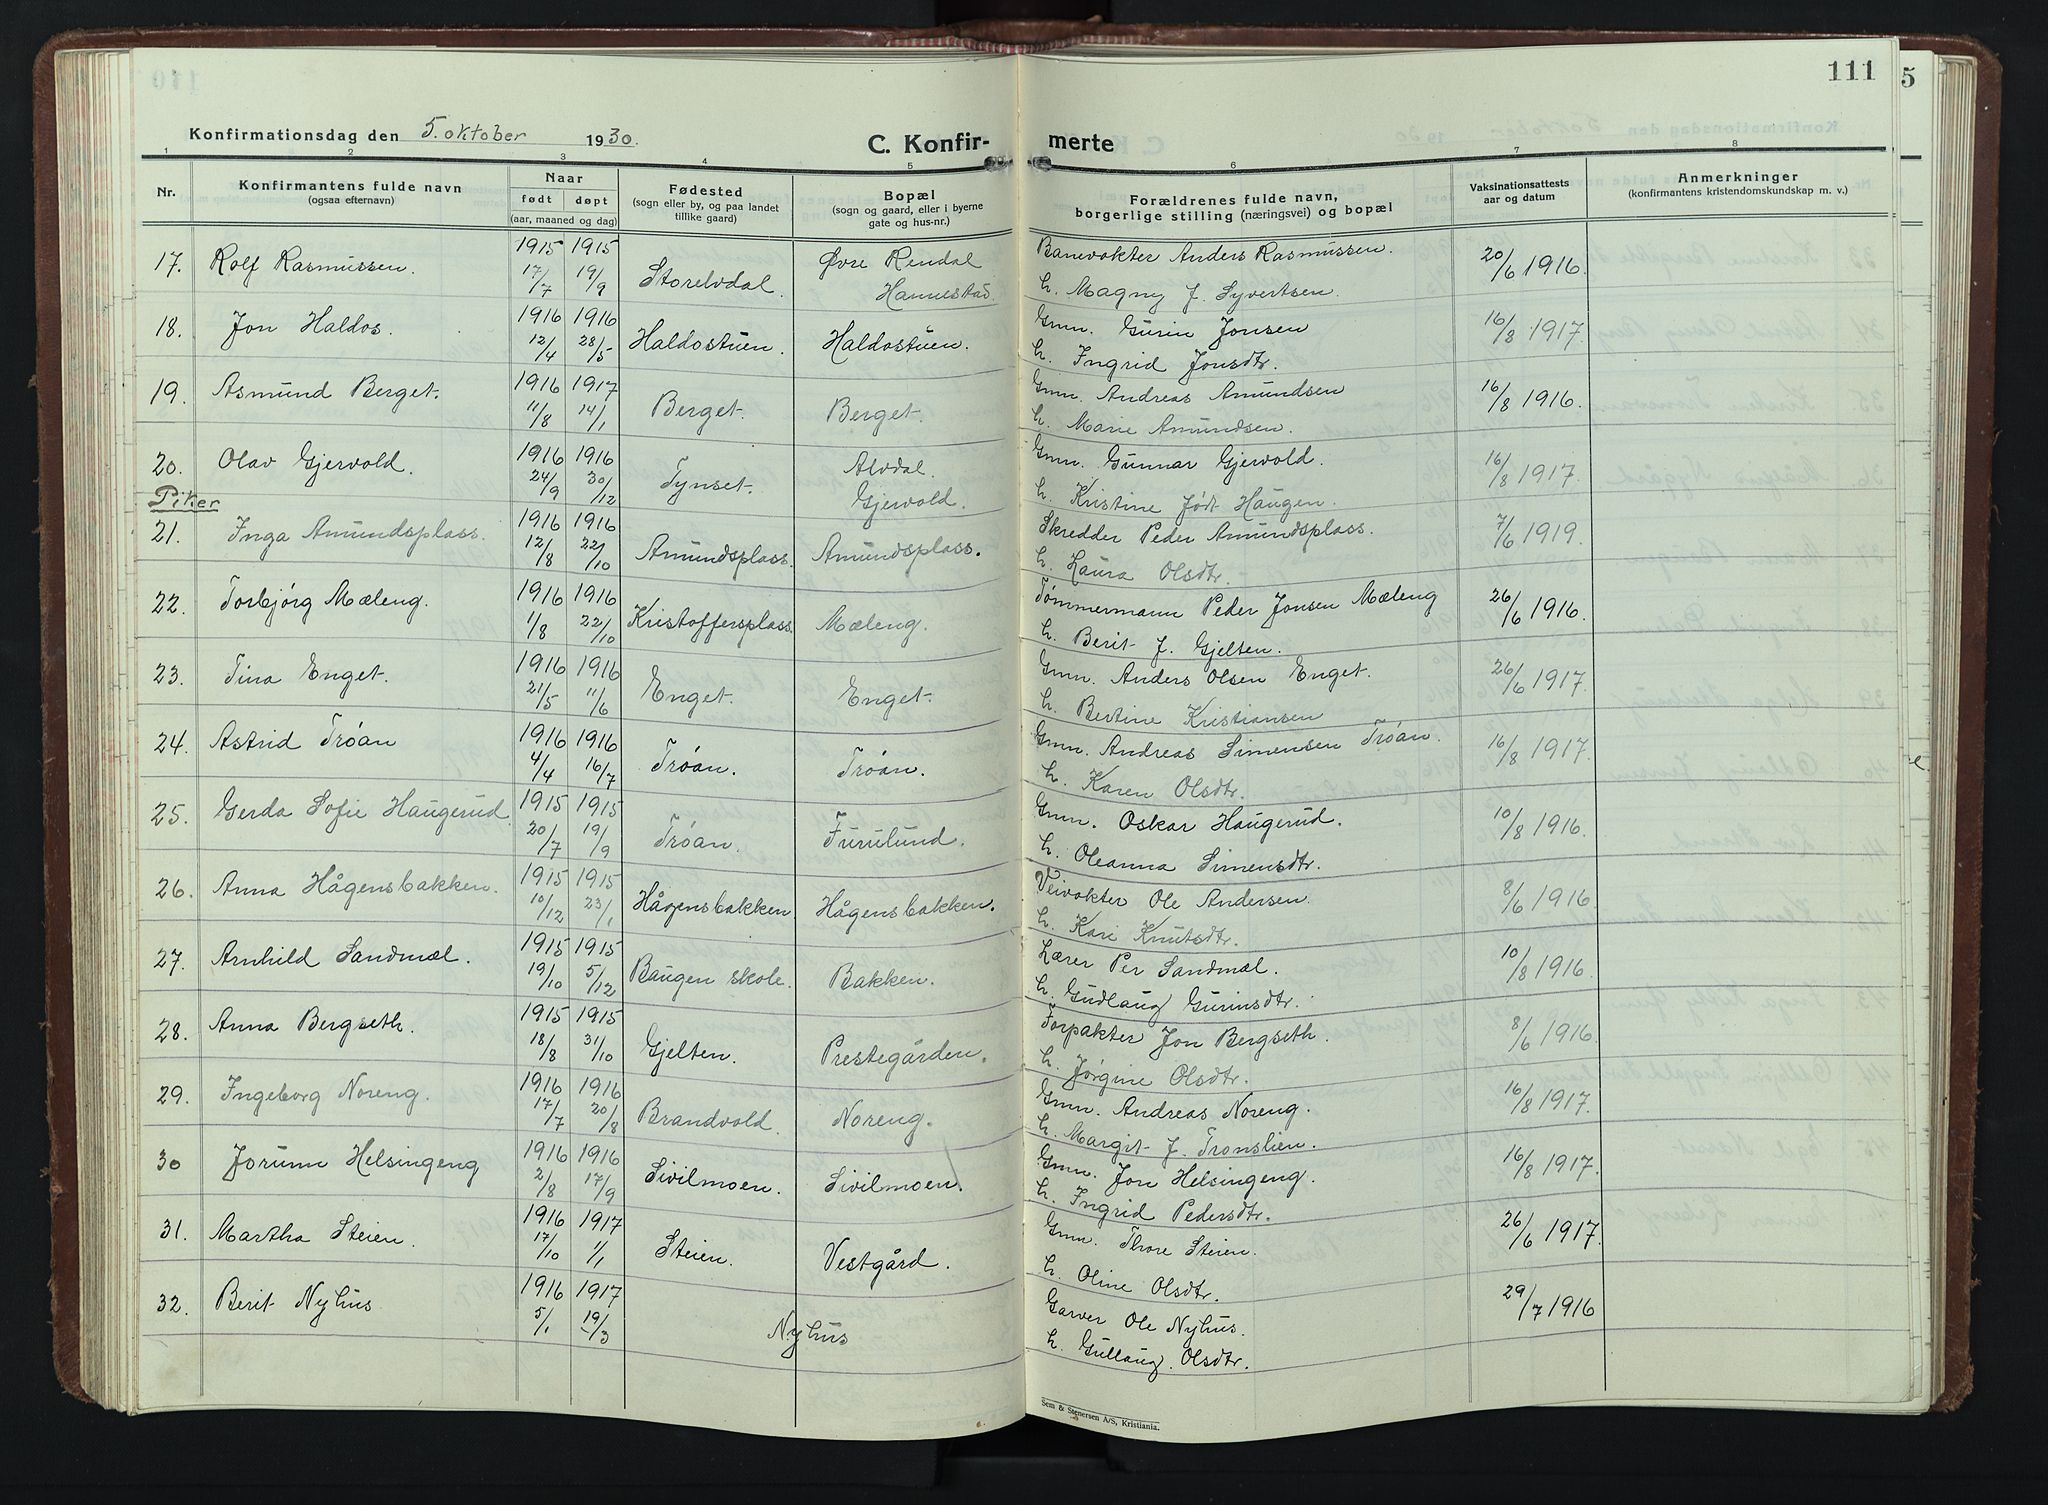 111
5
Konfirmationsdag den 5. oktober 1930.
C. Konfir-
merte
1 2 3 4 5 6 7 8
Nr.
Konfirmantens fulde navn
(ogsaa efternavn)
Naar
født døpt
(aar, maaned og dag)
Fødested
(sogn eller by, og paa landet
tillike gaard)
Bopæl
(sogn og gaard, eller i byerne
gate og hus-nr.)
Forældrenes fulde navn,
borgerlige stilling (næringsvei) og bopæl
Vaksinationsattests
aar og datum
Anmerkninger
(konfirmantens kristendomskundskap m. v.)
17. Rolf Rasmussen. 1915 17/7 1915 19/9 Storelvdal. Øvre Rendal Hannestad. Banevokter Anders Rasmussen. 20/6 1916.
h. Magny J. Syvertsen.
18. Jon Haldos. 1916 12/4 1916 28/5 Haldostuen. Haldostuen. Gmn. Gurin Jonsen 16/8 1917.
h. Ingrid Jonsdtr.
19. Asmund Berget. 1916 11/8 1917 14/1 Berget. Berget. Gmn. Andreas Amundsen 16/8 1916.
h. Marie Amundsen.
20. Olav Gjervold. 1916 24/9 1916 30/12 Tynset. Alvdal. Gjervold. Gmn. Gunnar Gjervold. 16/8 1917.
h. Kristine født Haugen.
Piker
21. Inga Amundsplass. 1916 12/8 1916 22/10 Amundsplass. Amundsplass. Skredder Peder Amundsplass. 7/6 1919.
h. Laura Olsdtr.
22. Torbjørg Mæleng. 1916 1/8 1916 22/10 Kristoffersplass. Mæleng. Tømmermann Peder Jonsen Mæleng 26/6 1916.
h. Berit J. Gjelten.
23. Tina Enget. 1916 21/5 1916 11/6 Enget. Enget. Gmn. Anders Olsen Enget. 26/6 1917.
h. Bertine Kristiansen
24. Astrid Trøan 1916 4/4 1916 16/7 Trøan. Trøan. Gmn. Andreas Simensen Trøan. 16/8 1917.
h. Karen Olsdtr.
25. Gerda Sofie Haugerud 1915 20/7 1915 19/9 Trøan. Furulund. Gmn. Oskar Haugerud. 10/8 1916.
h. Oleanna Simensdtr.
26. Anna Hågensbakken. 1915 10/12 1915 23/1 Hågensbakken Hågensbakken. Veivokter Ole Andersen. 8/6 1916.
h. Kari Knutsdtr.
27. Arnhild Sandmæl. 1915 19/10 1915 5/12 Baugen skole. Bakken. Lærer Per Sandmæl. 10/8 1916.
h. Gudlaug Gurinsdtr.
28. Anna Bergseth. 1915 18/8 1915 31/10 Gjelten. Prestegården. Forpakter Jon Bergseth. 8/6 1916.
h. Jørgine Olsdtr.
29. Ingeborg Noreng. 1916 17/7 1916 20/8 Brandvold. Noreng. Gmn. Andreas Noreng. 16/8 1917.
h. Margit J. Tronslien.
30 Jorunn Helsingeng 1916 2/8 1916 17/9 Sivilmoen. Sivilmoen. Gmn. Jon Helsingeng. 16/8 1917.
h. Ingrid Pedersdtr.
31. Martha Steien. 1916 17/10 1917 1/1 Steien. Vestgård. Gmn. Thore Steien. 26/6 1917.
h. Oline Olsdtr.
32. Berit Nyhus 1916 5/1 1917 19/3 Nyhus Garver Ole Nyhus. 29/7 1916
h. Gullaug Olsdtr.
Sem & Stenersen A/S, Kristiania.